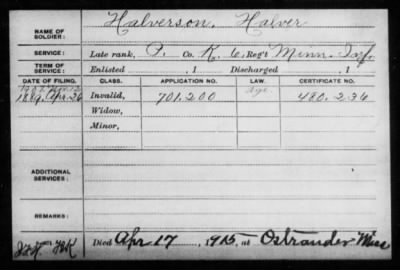 NAME OF SOLDIER: Halverson, Halver
SERVICE: Late rank, P. Co. K, 6, Reg't Minn. Inf.
TERM OF SERVICE: Enlisted , 1 Discharged , 1
DATE OF FILING. CLASS. APPLICATION NO. LAW. CERTIFICATE NO.
1889, Apr. 26 Invalid, 701.200 Age. 480.236
Widow,
Minor,
ADDITIONAL SERVICES:
REMARKS:
Died Apr 17, 1915, at Ostrander Minn